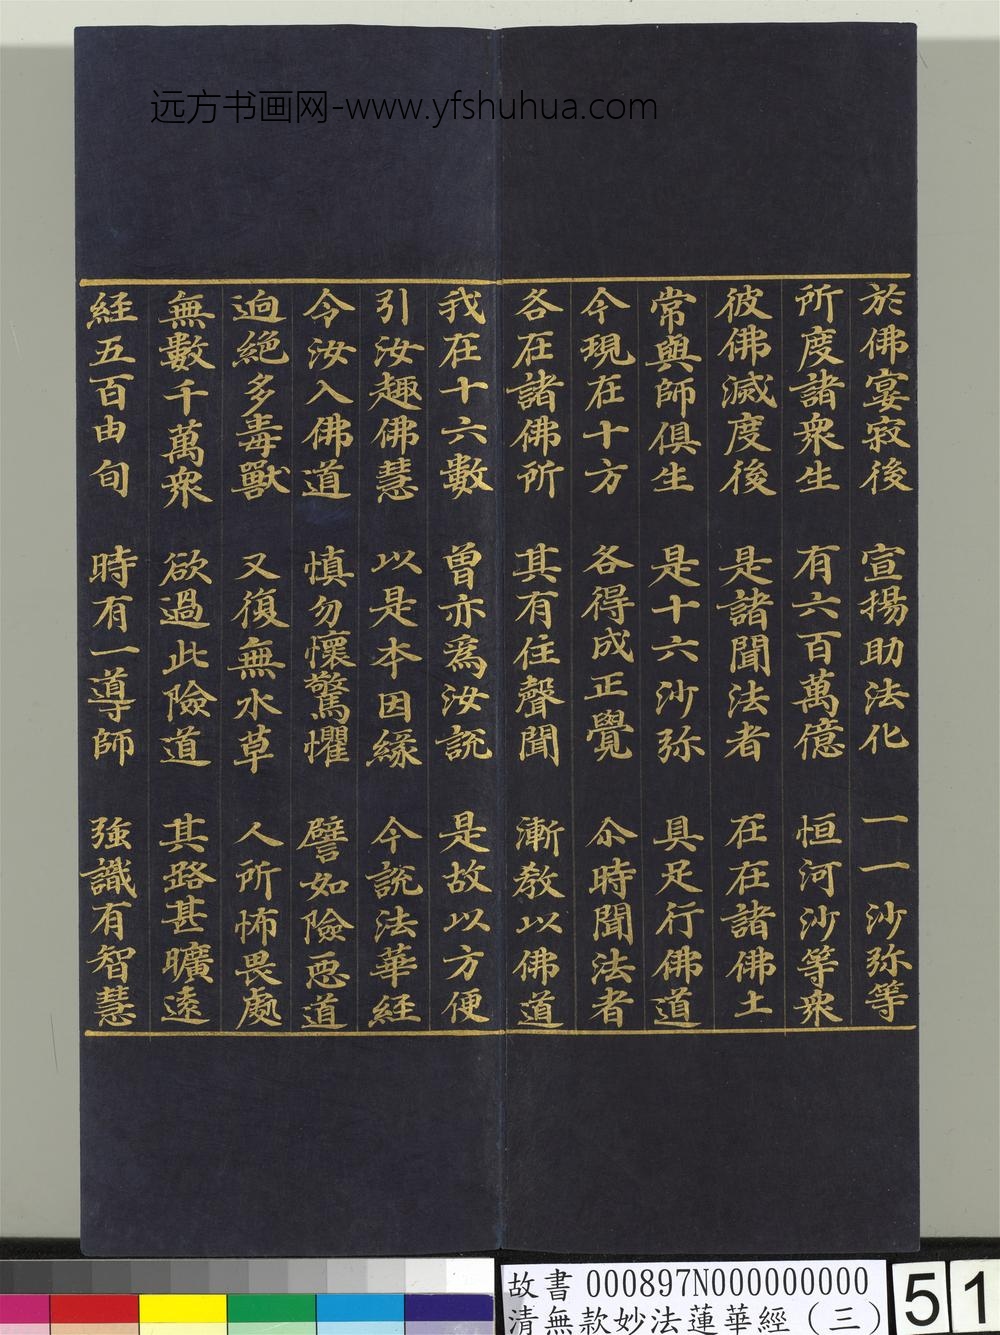 远方书画网-www.yfshuhua.com
於佛宴寂後 宣揚助法化 一一沙弥等
所度諸衆生 有六百萬億 恒河沙等衆
彼佛滅度後 是諸聞法者 在在諸佛土
常與師俱生 是十六沙弥 具足行佛道
今現在十方 各得成正覺 尒時聞法者
各在諸佛所 其有住聲聞 漸教以佛道
我在十六數 曽亦為汝説 是故以方便
引汝趣佛慧 以是本因緣 今説法華経
令汝入佛道 慎勿懷驚懼 譬如險惡道
逈絶多毒獸 又復無水草 人所怖畏處
無數千萬衆 欲過此險道 其路甚曠遠
経五百由旬 時有一導師 強識有智慧
故書 000897N000000000
清無款妙法蓮華經（三）
51